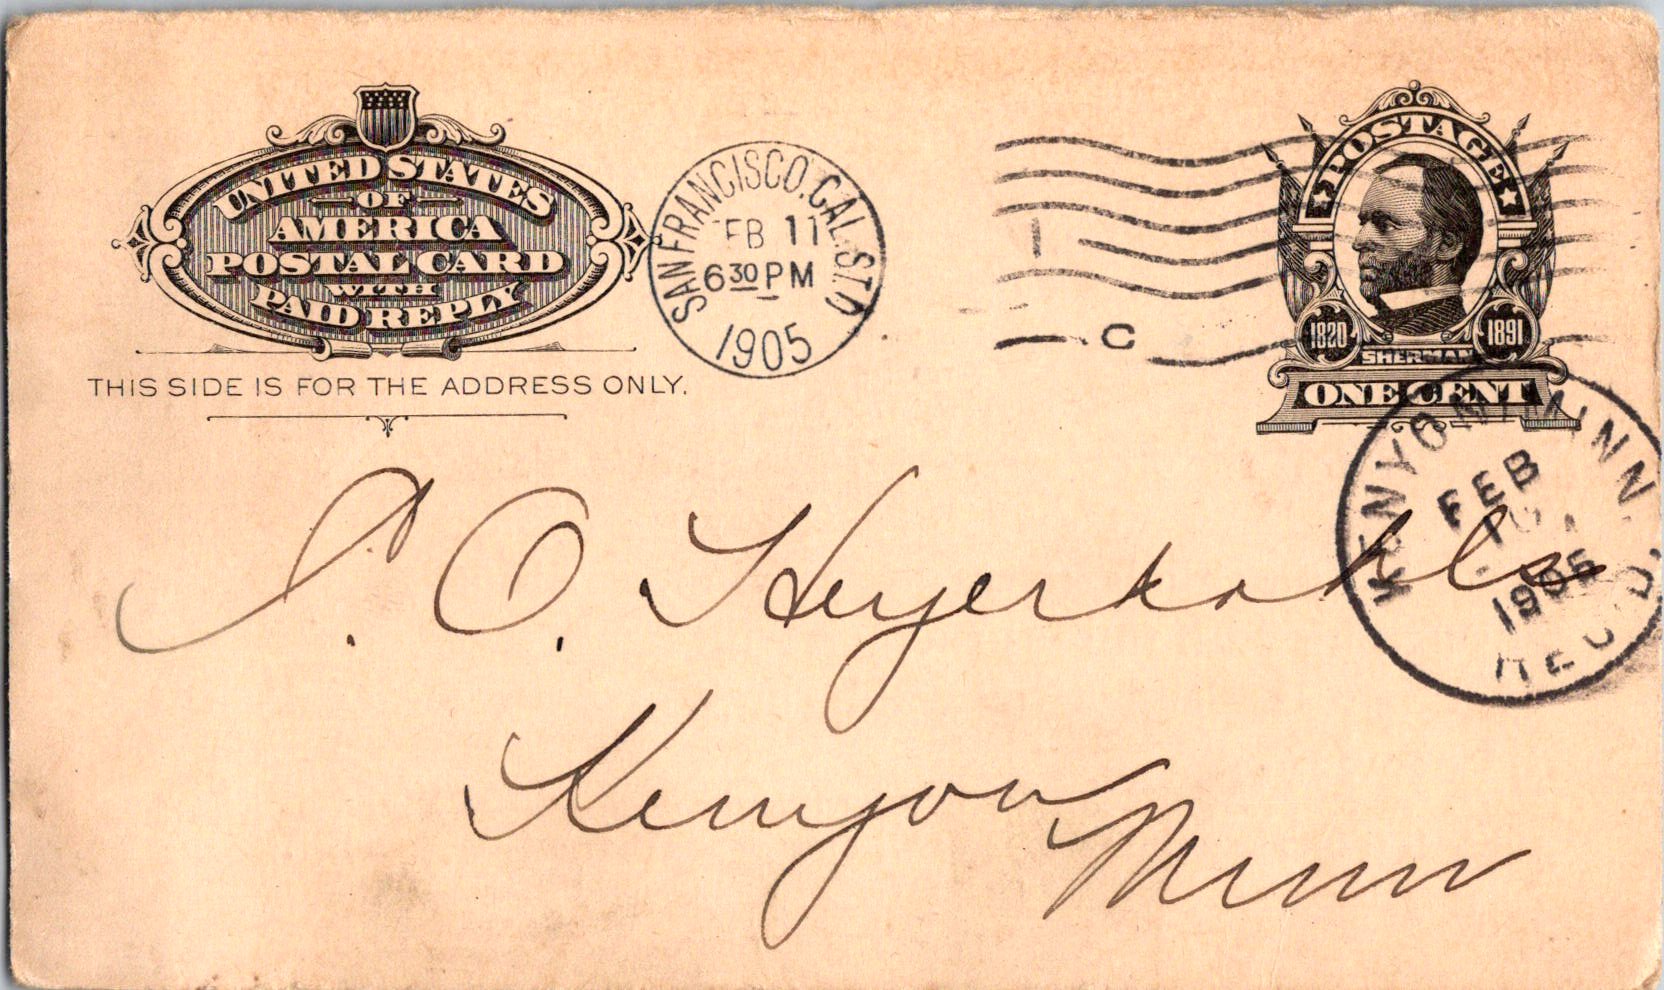 UNITED STATES
OF
AMERICA
POSTAL CARD
WITH
PAID REPLY
THIS SIDE IS FOR THE ADDRESS ONLY.
SAN FRANCISCO, CAL. STA.
FEB 11
6 30 PM
1905
1
C
POSTAGE
1820 1891
SHERMAN
ONE CENT
KENYON, MINN.
FEB
1905
REC'D.
O. Heyerdahls
Kenyon
Minn